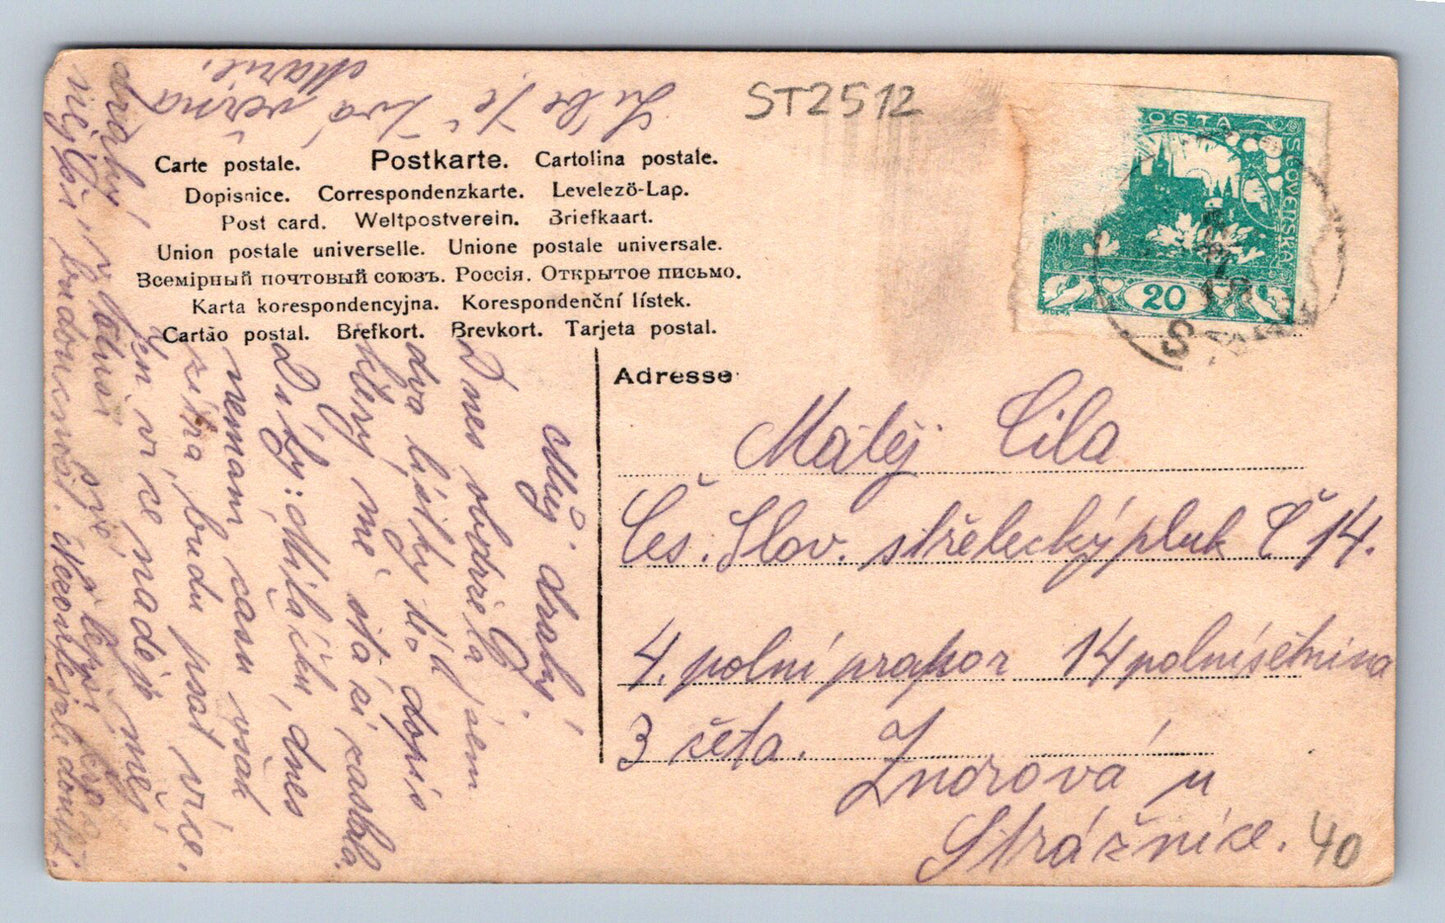 ST2512
Carte postale. Postkarte. Cartolina postale.
Dopisnice. Correspondenzkarte. Levelezö-Lap.
Post card. Weltpostverein. Briefkaart.
Union postale universelle. Unione postale universale.
Всемірный почтовый союзъ. Россія. Открытое письмо.
Karta korespondencyjna. Korespondenční lístek.
Cartão postal. Brefkort. Brevkort. Tarjeta postal.
OSTA
ČESKOSLOVENSKÁ
20
Adresse
Matěj Cila
Čes. Slov. střelecký pluk č 14.
4. polní prapor 14 polní setnina
3 četa. Zndrová u
Strážnice.
40
Můj drahý
Dnes obdržela jsem
dva lístky a dopis
který mě
Díky: Miláčku, dnes
nemam casu však
zítra budu psat více.
jen více naděj měj
drahý
budoucnost.
Líbe Tě Tvá věrná
Marie.